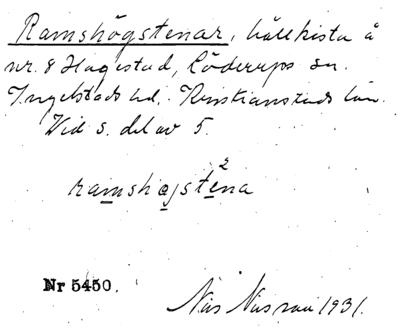 Ramshögstenar, hällkista å
nr. 8 Hagestad, Löderups sn.
Ingelstads hd. Kristianstads län.
Vid s. del av 5.
ramshøgstena
2
Nr 5450.
Nils 1931.